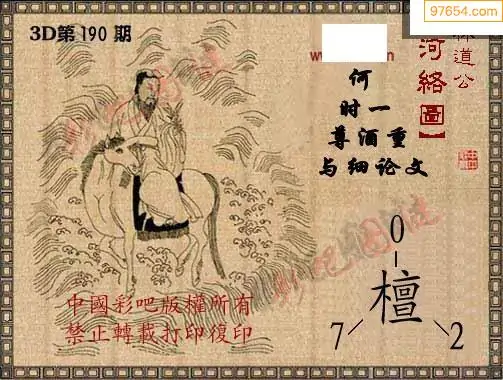 97654.com
3D第190期
林道公
河络圖】
何
时一
尊酒重
与细论文
0
檀
7 2
中國彩吧版權所有
禁止轉載打印復印